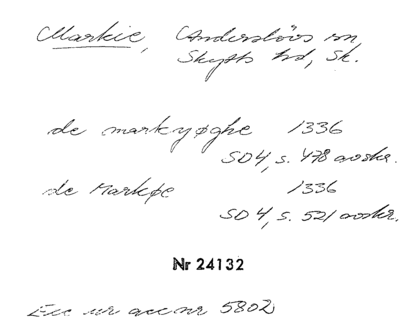 Markie, Anderslövs sn,
Skytts hd, Sk.
de markyøghe 1336
SD 4, s. 478 avskr.
de Markøe 1336
SD 4, s. 521 avskr.
Nr 24132
Exc ur acc nr 5802